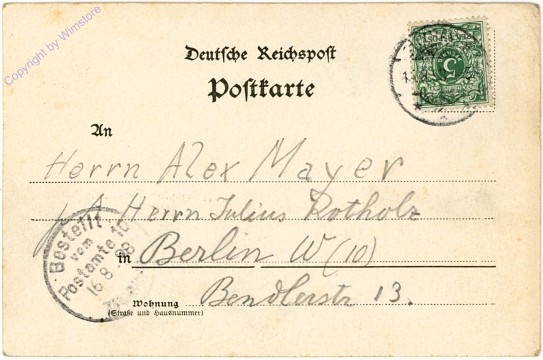 Copyright by Wimstore
Deutsche Reichspost
Postkarte
5
An
Herrn Alex Mayer
p. A Herrn Julius Rotholz
in Berlin W (10)
Bestellt
vom
Postamte 10
16 8. 98
Wohnung
(Straße und Hausnummer)
Bendlerstr 13.